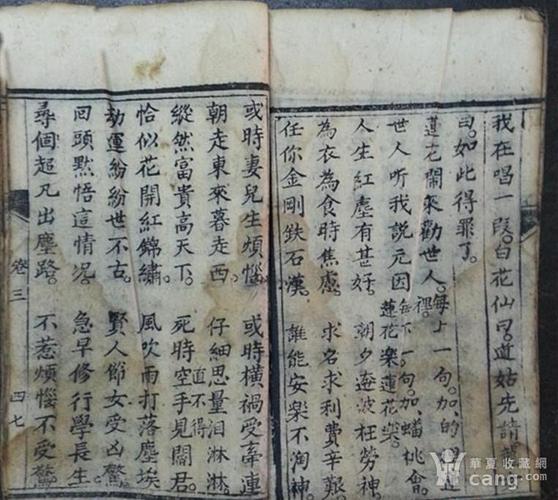 我在唱一段。白花仙曰。道姑先請
曰。如此得罪了。
蓮花鬧來勸世人。每上一句。加。的
裡。每下一句。加。蟠桃會
世人听我說元因 蓮花樂蓮花樂。
人生紅塵有甚好。 朝夕奔波枉勞神。
為衣為食時焦慮。 求名求利費辛艱
任你金剛鉄石漢 誰能安樂不淘神
或時妻兒生煩惱 或時橫禍受牽連
朝走東來暮走西。 仔細思量泪淋淋。
直不得
縱然富貴高天下。 死時空手見閻君
恰似花開紅錦繡。 風吹雨打落塵埃
劫運紛紛世不古。 賢人節女受凶驚
回頭黙悟這情况。 急早修行學長生。
尋個超凡出塵路。 不惹煩惱不受驚
卷三 四七
華夏收藏网
cang.com